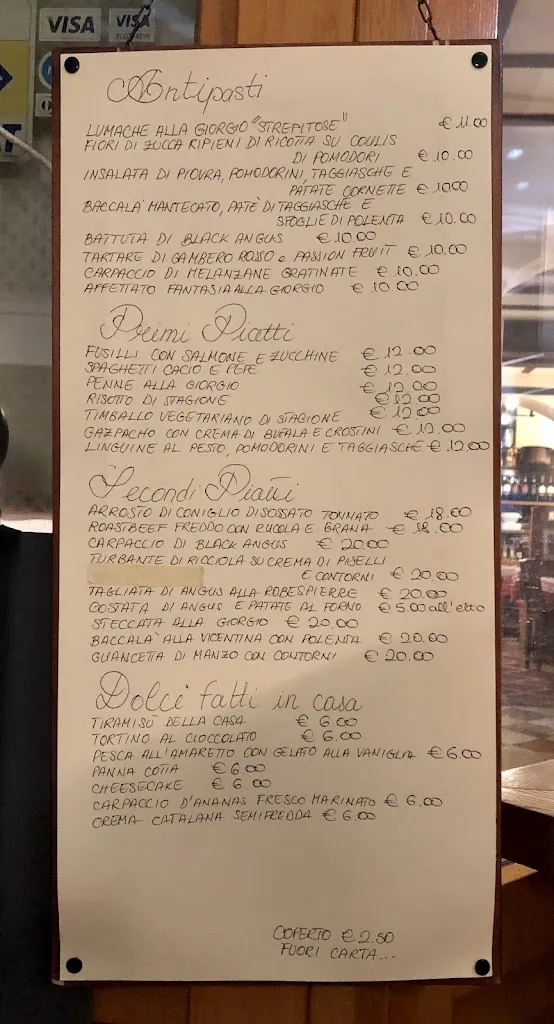 VISA
VISA
ELECTRON
Antipasti
LUMACHE ALLA GIORGIO "STREPITOSE" € 11.00
FIORI DI ZUCCA RIPIENI DI RICOTTA SU COULIS
DI POMODORI € 10.00
INSALATA DI PIOVRA, POMODORINI, TAGGIASCHE E
PATATE CORNETTE € 10.00
BACCALA' MANTECATO, PATÈ DI TAGGIASCHE E
SFOGLIE DI POLENTA € 10.00
BATTUTA DI BLACK ANGUS € 10.00
TARTARE DI GAMBERO ROSSO e PASSION FRUIT € 10.00
CARPACCIO DI MELANZANE GRATINATE € 10.00
AFFETTATO FANTASIA ALLA GIORGIO € 10.00
Primi Piatti
FUSILLI CON SALMONE E ZUCCHINE € 12.00
SPAGHETTI CACIO E PEPE € 12.00
PENNE ALLA GIORGIO € 12.00
RISOTTO DI STAGIONE € 12.00
TIMBALLO VEGETARIANO DI STAGIONE € 12.00
GAZPACHO CON CREMA DI BUFALA E CROSTINI € 12.00
LINGUINE AL PESTO, POMODORINI E TAGGIASCHE € 12.00
Secondi Piatti
ARROSTO DI CONIGLIO DISOSSATO TONNATO € 18.00
ROASTBEEF FREDDO CON RUCOLA E GRANA € 18.00
CARPACCIO DI BLACK ANGUS € 20.00
TURBANTE DI RICCIOLA SU CREMA DI PISELLI
E CONTORNI € 20,00
TAGLIATA DI ANGUS ALLA ROBESPIERRE € 20.00
COSTATA DI ANGUS E PATATE AL FORNO € 5.00 all'etto
STECCATA ALLA GIORGIO € 20.00
BACCALA' ALLA VICENTINA CON POLENTA € 20.00
GUANCETTA DI MANZO CON CONTORNI € 20.00
Dolci fatti in casa
TIRAMISÙ DELLA CASA € 6.00
TORTINO AL CIOCCOLATO € 6.00
PESCA ALL'AMARETTO CON GELATO ALLA VANIGLIA € 6.00
PANNA COTTA € 6.00
CHEESECAKE € 6.00
CARPACCIO D'ANANAS FRESCO MARINATO € 6.00
CREMA CATALANA SEMIFREDDA € 6.00
COPERTO € 2.50
FUORI CARTA...